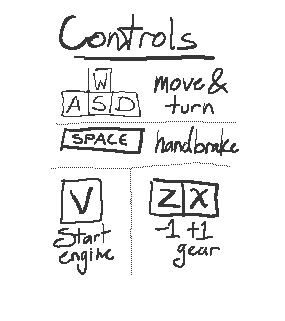 Controls
W
A S D
move &
turn
SPACE
handbrake
V
Start
engine
Z X
-1 +1
gear